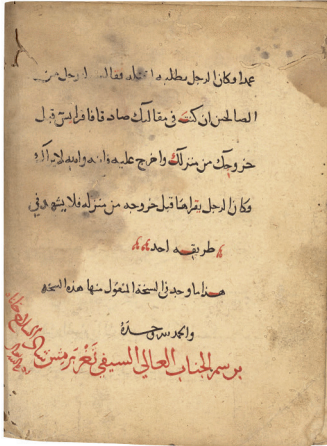 عمدا وكان الرجل يطلبه فقال رجل من
الصالحين ان كنت في مقالتك صادقا فاقرا يس قبل
خروجك من منزلك واخرج عليه فانه والله لا يراك
وكان الرجل يقراها قبل خروجه من منزله فلا يشهد في
طريقه احد
هذا ما وجد في النسخة المنقول منها هذه النسخة
والحمد لله وحده
برسم الجناب العالي السيفي تغري برمش